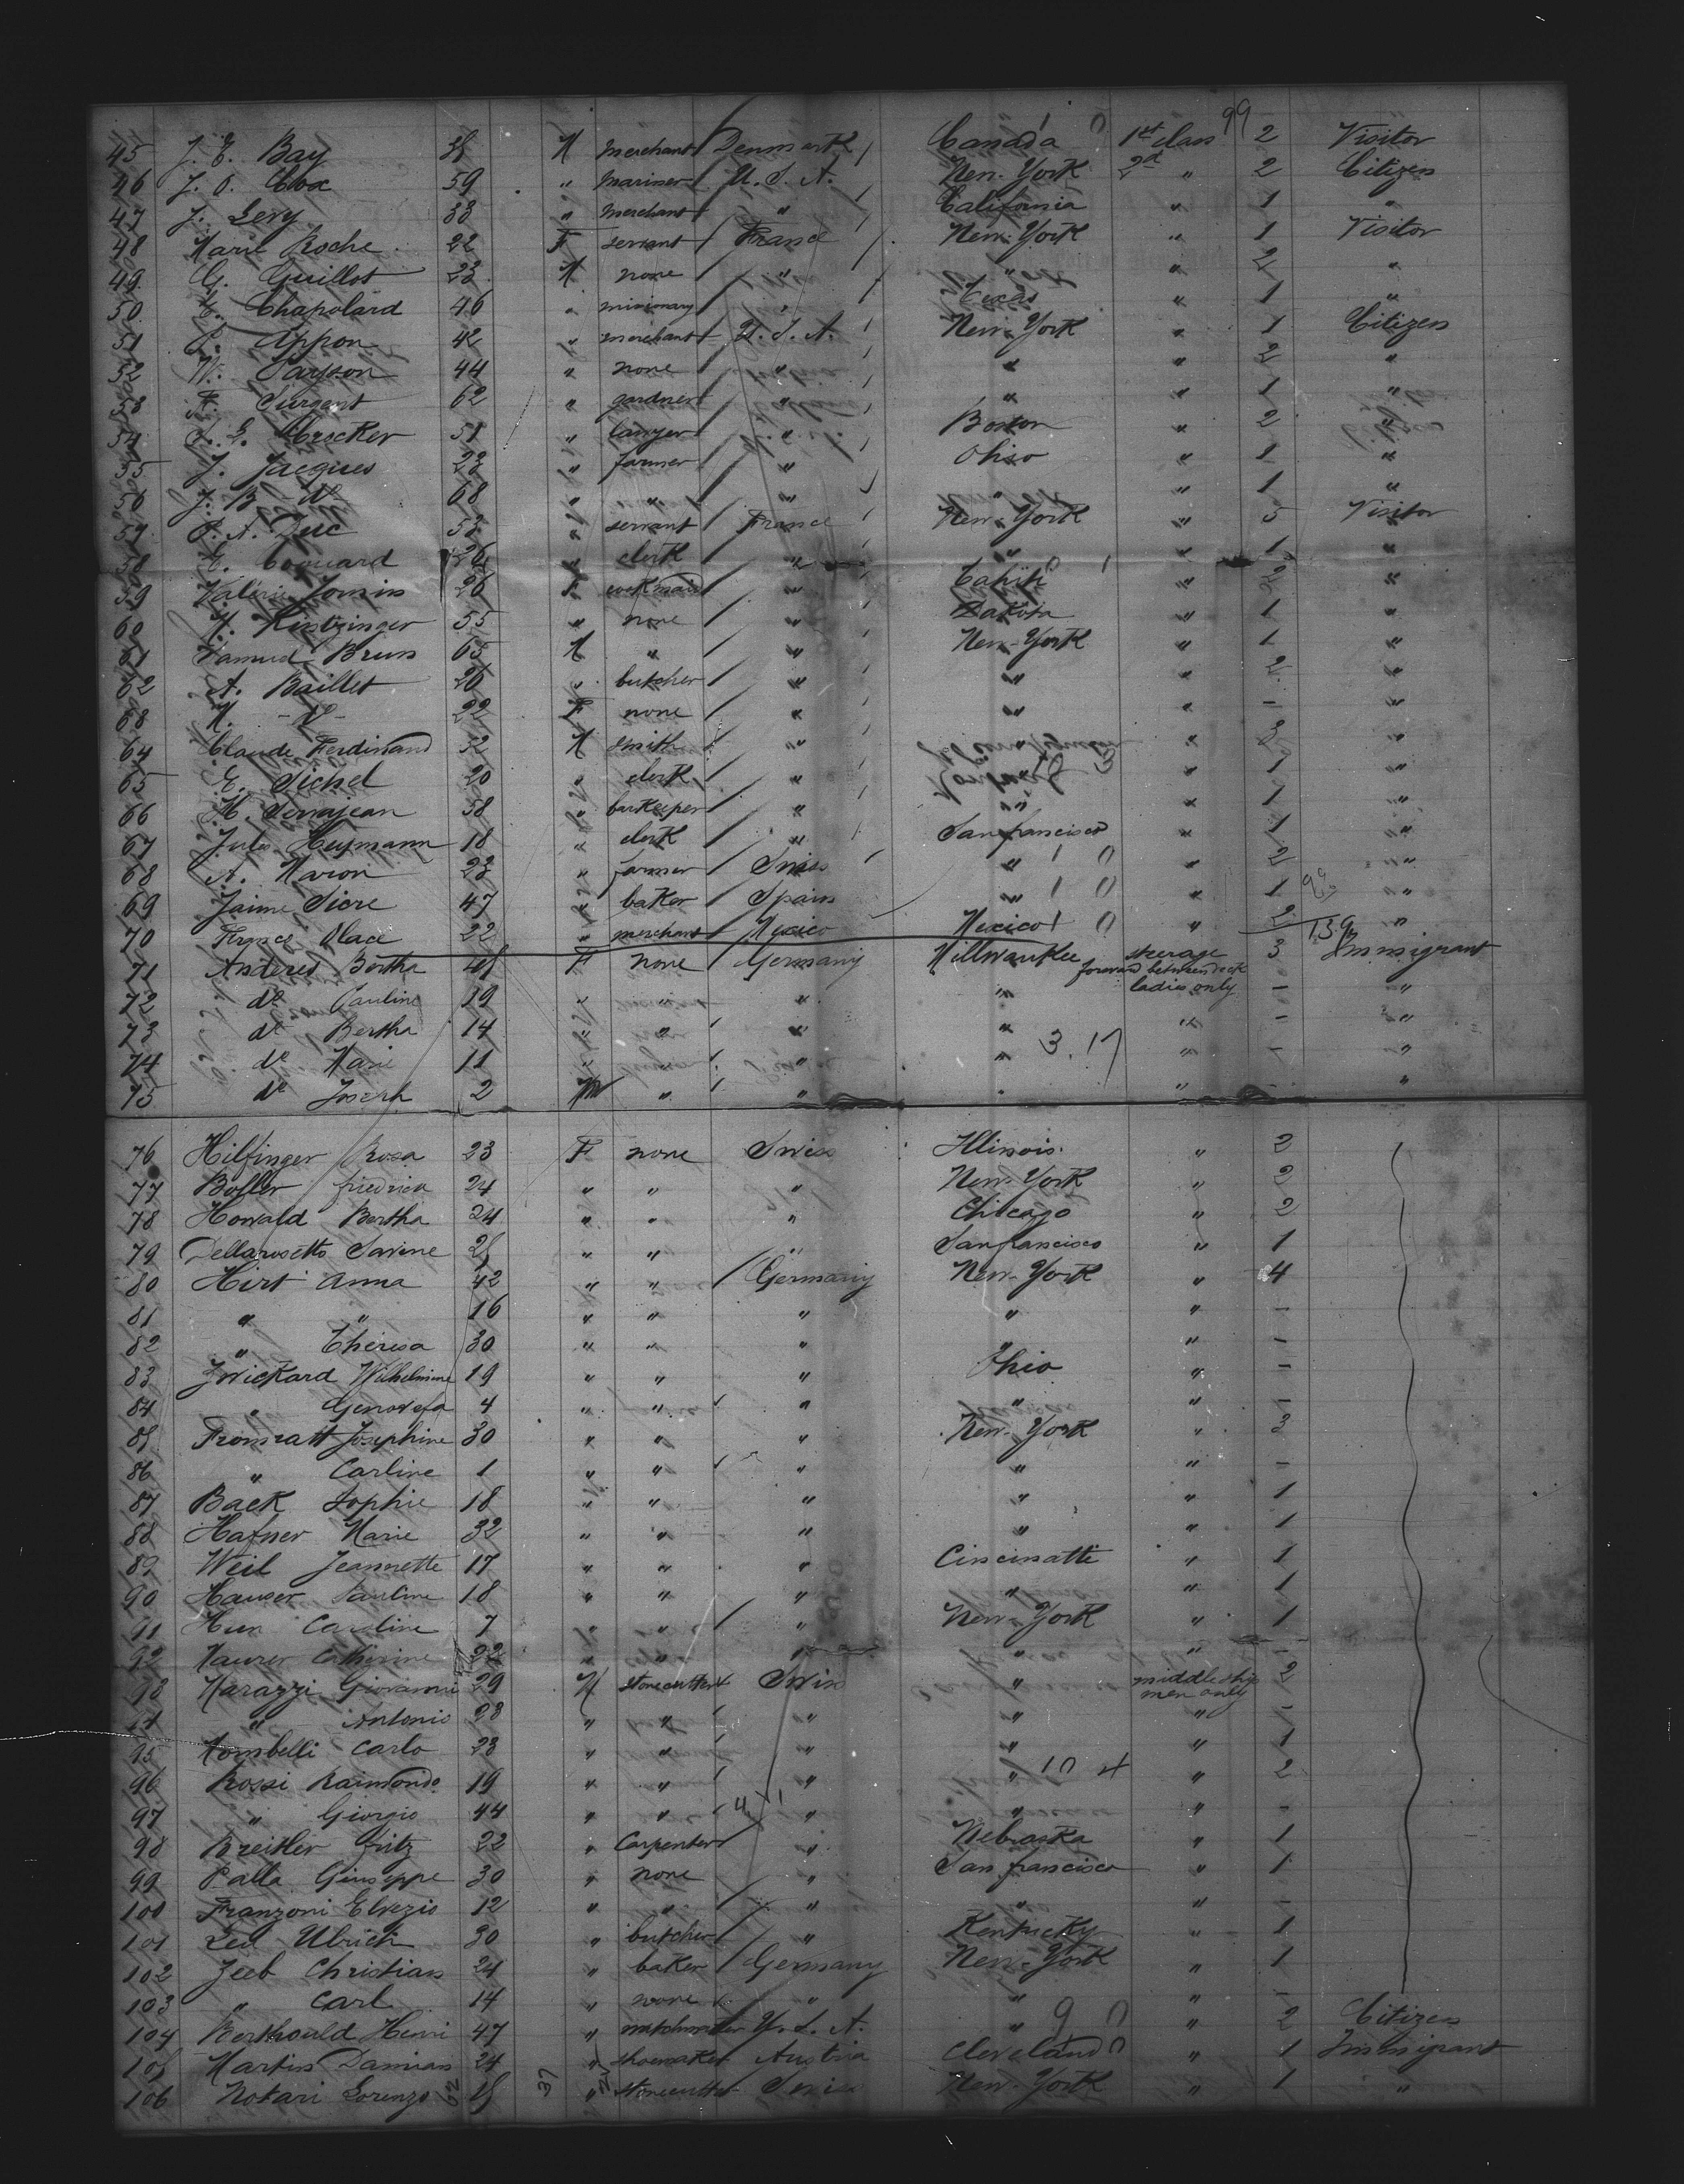 99
45 J. E. Bay 35 M merchant Denmark Canada 1st class 2 Visitor
46 J. O. Cox 59 " mariner U. S. A. New-York 2d " 2 Citizen
47 J. Levy 33 " merchant " California " 1 "
48 Marie Roche 22 F servant France New-York " 1 Visitor
49 G. Guillot 23 M none " " " 2 "
50 E. Chapolard 46 " missionary " Texas " 1 "
51 P. Appon 42 " merchant U. S. A. New-York " 1 Citizen
52 W. Parson 44 " none " " " 2 "
53 F. Surgent 62 " gardner " " " 1 "
54 S. E. Crocker 51 " lawyer " Boston " 2 "
55 J. Jacques 23 " farmer " Ohio " 1 "
56 J. B. do 68 " " " " " 1 "
57 P. A. Duc 53 " servant France New-York " 5 Visitor
58 E. 26 " clerk " " " 1 "
59 Valérie 26 F " Tahiti " 2 "
60 M. Kintzinger 55 " none " Dakota " 1 "
61 Samuel Brun 65 M " " New-York " 1 "
62 A. Baillet 26 " butcher " " " 2 "
63 M. - do - 22 F none " " " - "
64 Claude Ferdinand 32 M smith " " 3 "
65 E. Sichel 20 " clerk " " 1 "
66 M. 58 " barkeeper " " " 1 "
67 Jules Heymann 18 " clerk " San francisco " 1 "
68 A. Maron 23 " farmer Swiss " " 2 "
69 Jaime Sicre 47 " baker Spain " " 1 "
70 22 " merchant Mexico Mexico " 2 "
71 Anderes Bertha 45 F none Germany Millwaukee steerage 3 Immigrant
forward between deck
72 do Pauline 19 " " " " ladies only - "
73 do Bertha 14 " " " " " - "
74 do Marie 11 " " " " " - "
3.17
75 do Joseph 2 M " " " " - "
76 Hilfinger Rosa 23 F none Swiss Illinois " 2
77 Boller friedrica 24 " " " New-York " 2
78 Howald Bertha 24 " " " Chicago " 2
79 Dellarosetto Savine 25 " " " San francisco " 1
80 Hirt Anna 42 " " Germany New-York " 4
81 " " 16 " " " " " -
82 " Theresa 30 " " " " " -
83 Zwickard Wilhelmine 19 " " " Ohio " -
84 " Genovefa 4 " " " " " -
85 Fromratt Josephine 30 " " " New-York " 3
86 " Carline 1 " " " " " -
87 Back Sophie 18 " " " " " 1
88 Hafner Marie 32 " " " " " 1
89 Weil Jeannette 17 " " " Cincinatti " 1
90 Hauser Pauline 18 " " " " " 1
91 Hun Caroline 7 " " " New-York " 1
92 Maurer Catherine 22 " " " " " -
93 Marazzi Giovanni 29 M stonecutter Swiss " middleship 2
men only
94 " Antonio 23 " " " " " -
95 Mombelli Carlo 23 " " " " " 1
96 Rossi Raimondo 19 " " " " " 2
97 " Giorgio 44 " " " " " -
98 Breitler fritz 22 " Carpenter " Nebraska " 1
99 Palla Giuseppe 30 " none " San francisco " 1
100 Franzoni Elvezio 12 " " " " " -
101 Led Ulrich 30 " butcher " Kentucky " 1
102 Jeeb Christian 24 " baker Germany New-York " 1
103 " Carl 14 " none " " " -
104 Berthould Henri 47 " watchmaker U. S. A. " " 2 Citizen
105 Martin Damian 24 " shoemaker Austria Cleveland " 1 Immigrant
106 Notari Lorenzo 25 " stonecutter Swiss New-York " 1 "